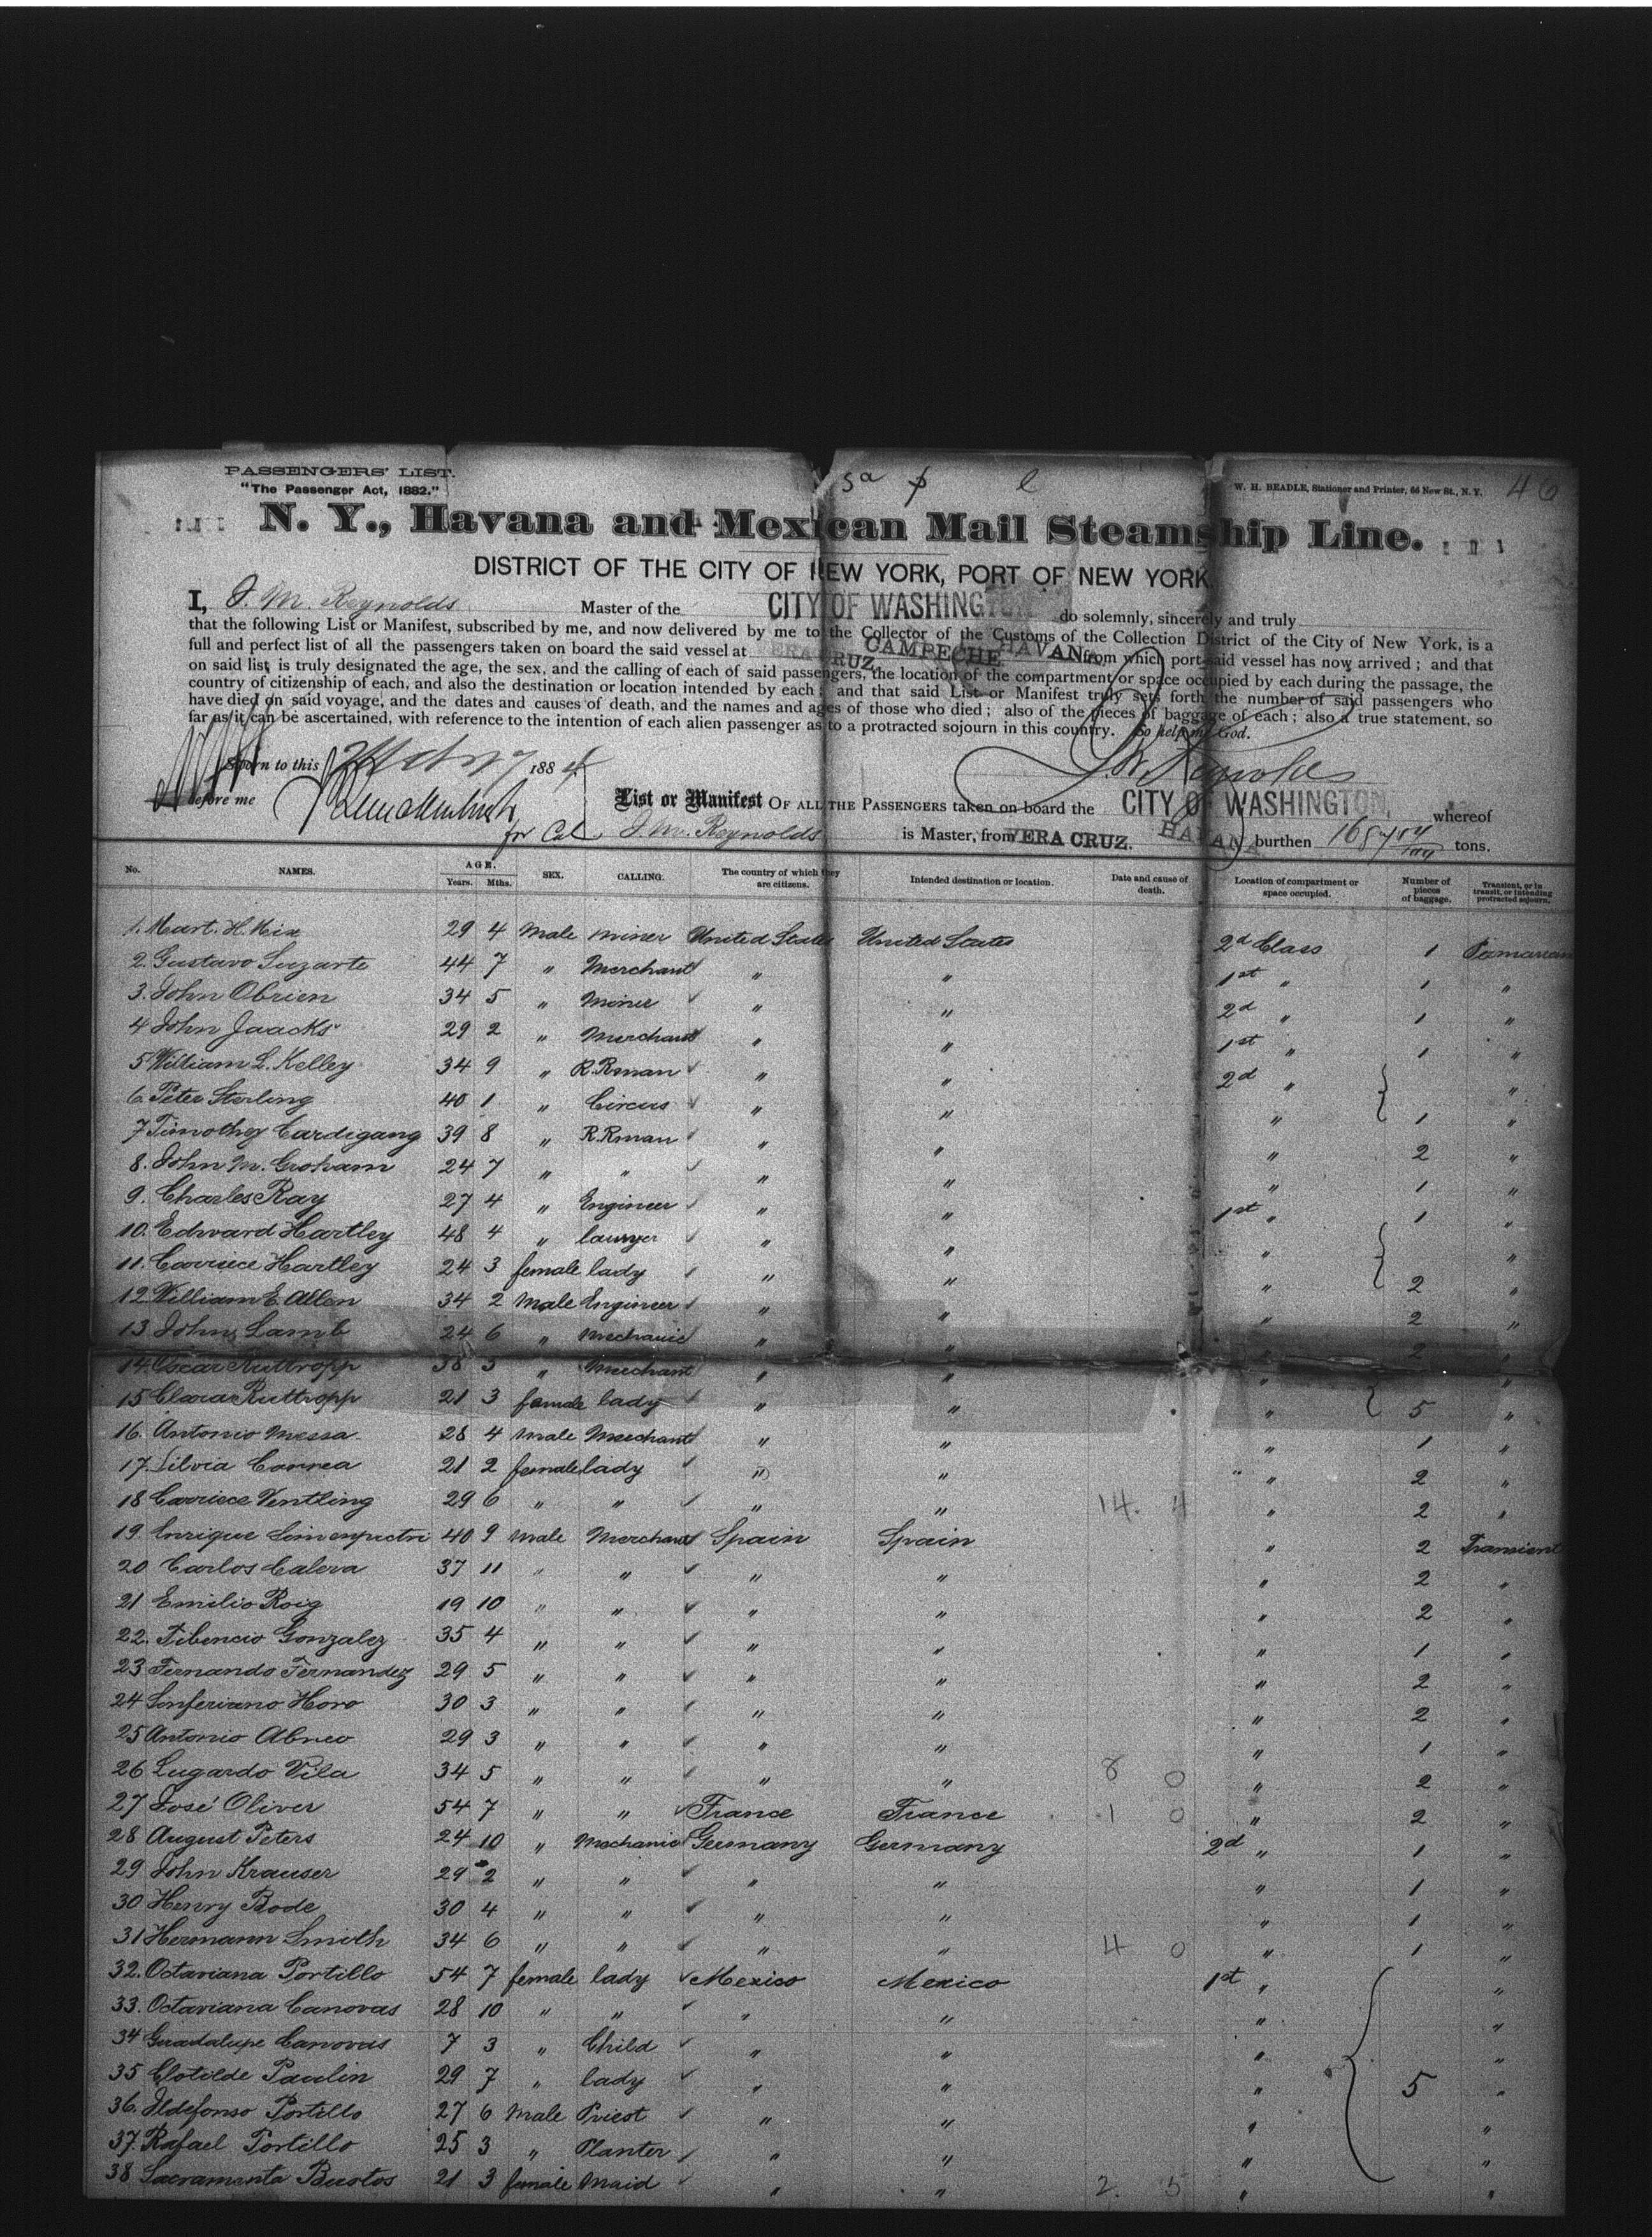 PASSENGERS' LIST.
"The Passenger Act, 1882."
W. H. BEADLE, Stationer and Printer, 66 New St., N. Y. 46
N. Y., Havana and Mexican Mail Steamship Line.
DISTRICT OF THE CITY OF NEW YORK, PORT OF NEW YORK.
I, J. M. Reynolds Master of the CITY OF WASHINGTON do solemnly, sincerely and truly
that the following List or Manifest, subscribed by me, and now delivered by me to the Collector of the Customs of the Collection District of the City of New York, is a
full and perfect list of all the passengers taken on board the said vessel at VERA CRUZ, CAMPECHE HAVANA from which port said vessel has now arrived; and that
on said list is truly designated the age, the sex, and the calling of each of said passengers, the location of the compartment or space occupied by each during the passage, the
country of citizenship of each, and also the destination or location intended by each; and that said List or Manifest truly sets forth the number of said passengers who
have died on said voyage, and the dates and causes of death, and the names and ages of those who died; also of the pieces of baggage of each; also a true statement, so
far as it can be ascertained, with reference to the intention of each alien passenger as to a protracted sojourn in this country. So help me God.
Sworn to this 1884 J. M. Reynolds
before me
for Col
List or Manifest OF ALL THE PASSENGERS taken on board the CITY OF WASHINGTON, whereof
J. M. Reynolds is Master, from VERA CRUZ. HAVANA burthen tons.
No. NAMES. AGE. Years. Mths. SEX. CALLING. The country of which they are citizens. Intended destination or location. Date and cause of death. Location of compartment or space occupied. Number of pieces of baggage. Transient, or in transit, or intending protracted sojourn.
1. Mart. H. Mix 29 4 Male Miner United States United States 2d Class 1
2. Gustavo Suzarte 44 7 " Merchant " " 1st " 1 "
3. John Obrien 34 5 " Miner " " 2d " 1 "
4 John Jaacks 29 2 " Merchant " " 1st " 1 "
5 William L. Kelley 34 9 " R.Rman " " 2d " "
6. Peter Sterling 40 1 " Circus " " " 1 "
7 Timothey Cardigang 39 8 " R.Rman " " " 2 "
8. John M. Groham 24 7 " " " " " 1 "
9. Charles Ray 27 4 " Engineer " " 1st " 1 "
10. Edward Hartley 48 4 " lawyer " " " "
11. Carriece Hartley 24 3 female lady " " " 2 "
12. William E. Allen 34 2 Male Engineer " " " 2 "
13 John Lamb 24 6 " Mechanic " " " 2 "
14. Oscar Ruttropp 38 3 " Merchant " " " "
15 Clara Ruttropp 21 3 female lady " " " 5 "
16. Antonio Messa 28 4 Male Merchant " " " 1 "
17. Silvia Correa 21 2 female lady " " " 2 "
18 Carriece Ventling 29 6 " " " " 14. 4 " 2 "
19. Enrique 40 9 Male Merchant Spain Spain " 2 Transient
20 Carlos Calera 37 11 " " " " " 2 "
21 Emilio Roig 19 10 " " " " " 2 "
22. Tibencio Gonzalez 35 4 " " " " " 1 "
23 Fernando Fernandez 29 5 " " " " " 2 "
24 Sinferiano Horo 30 3 " " " " " 2 "
25 Antonio Abreo 29 3 " " " " " 1 "
26 Lugardo Vila 34 5 " " " " 8 0 " 2 "
27 José Oliver 54 7 " " France France 1 0 " 2 "
28 August Peters 24 10 " Mechanic Germany Germany 2d " 1 "
29 John Krauser 29 2 " " " " " 1 "
30 Henry Bode 30 4 " " " " " 1 "
31 Hermann Smith 34 6 " " " " 4 0 " 1 "
32. Octaviana Portillo 54 7 female lady Mexico Mexico 1st " "
33. Octaviana Canovas 28 10 " " " " " "
34 Guadalupe Canovas 7 3 " Child " " " "
35 Clotilde Paulin 29 7 " lady " " " 5 "
36. Ildefonso Portillo 27 6 Male Priest " " " "
37. Rafael Portillo 25 3 " Planter " " " "
38 Sacramenta Bustos 21 3 female Maid " " 2. 5 " "